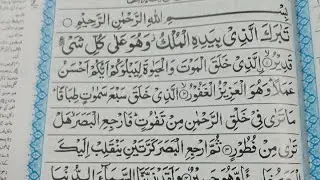 بِسْمِ اللهِ الرَّحْمٰنِ الرَّحِيْمِ
تَبٰرَكَ الَّذِيْ بِيَدِهِ الْمُلْكُ وَهُوَ عَلٰى كُلِّ شَيْءٍ
قَدِيْرُ الَّذِيْ خَلَقَ الْمَوْتَ وَالْحَيٰوةَ لِيَبْلُوَكُمْ اَيُّكُمْ اَحْسَنُ
عَمَلًا وَهُوَ الْعَزِيْزُ الْغَفُوْرُ الَّذِيْ خَلَقَ سَبْعَ سَمٰوٰتٍ طِبَاقًا
مَا تَرٰى فِيْ خَلْقِ الرَّحْمٰنِ مِنْ تَفٰوُتٍ فَارْجِعِ الْبَصَرَ هَلْ
تَرٰى مِنْ فُطُوْرٍ ثُمَّ ارْجِعِ الْبَصَرَ كَرَّتَيْنِ يَنْقَلِبْ اِلَيْكَ